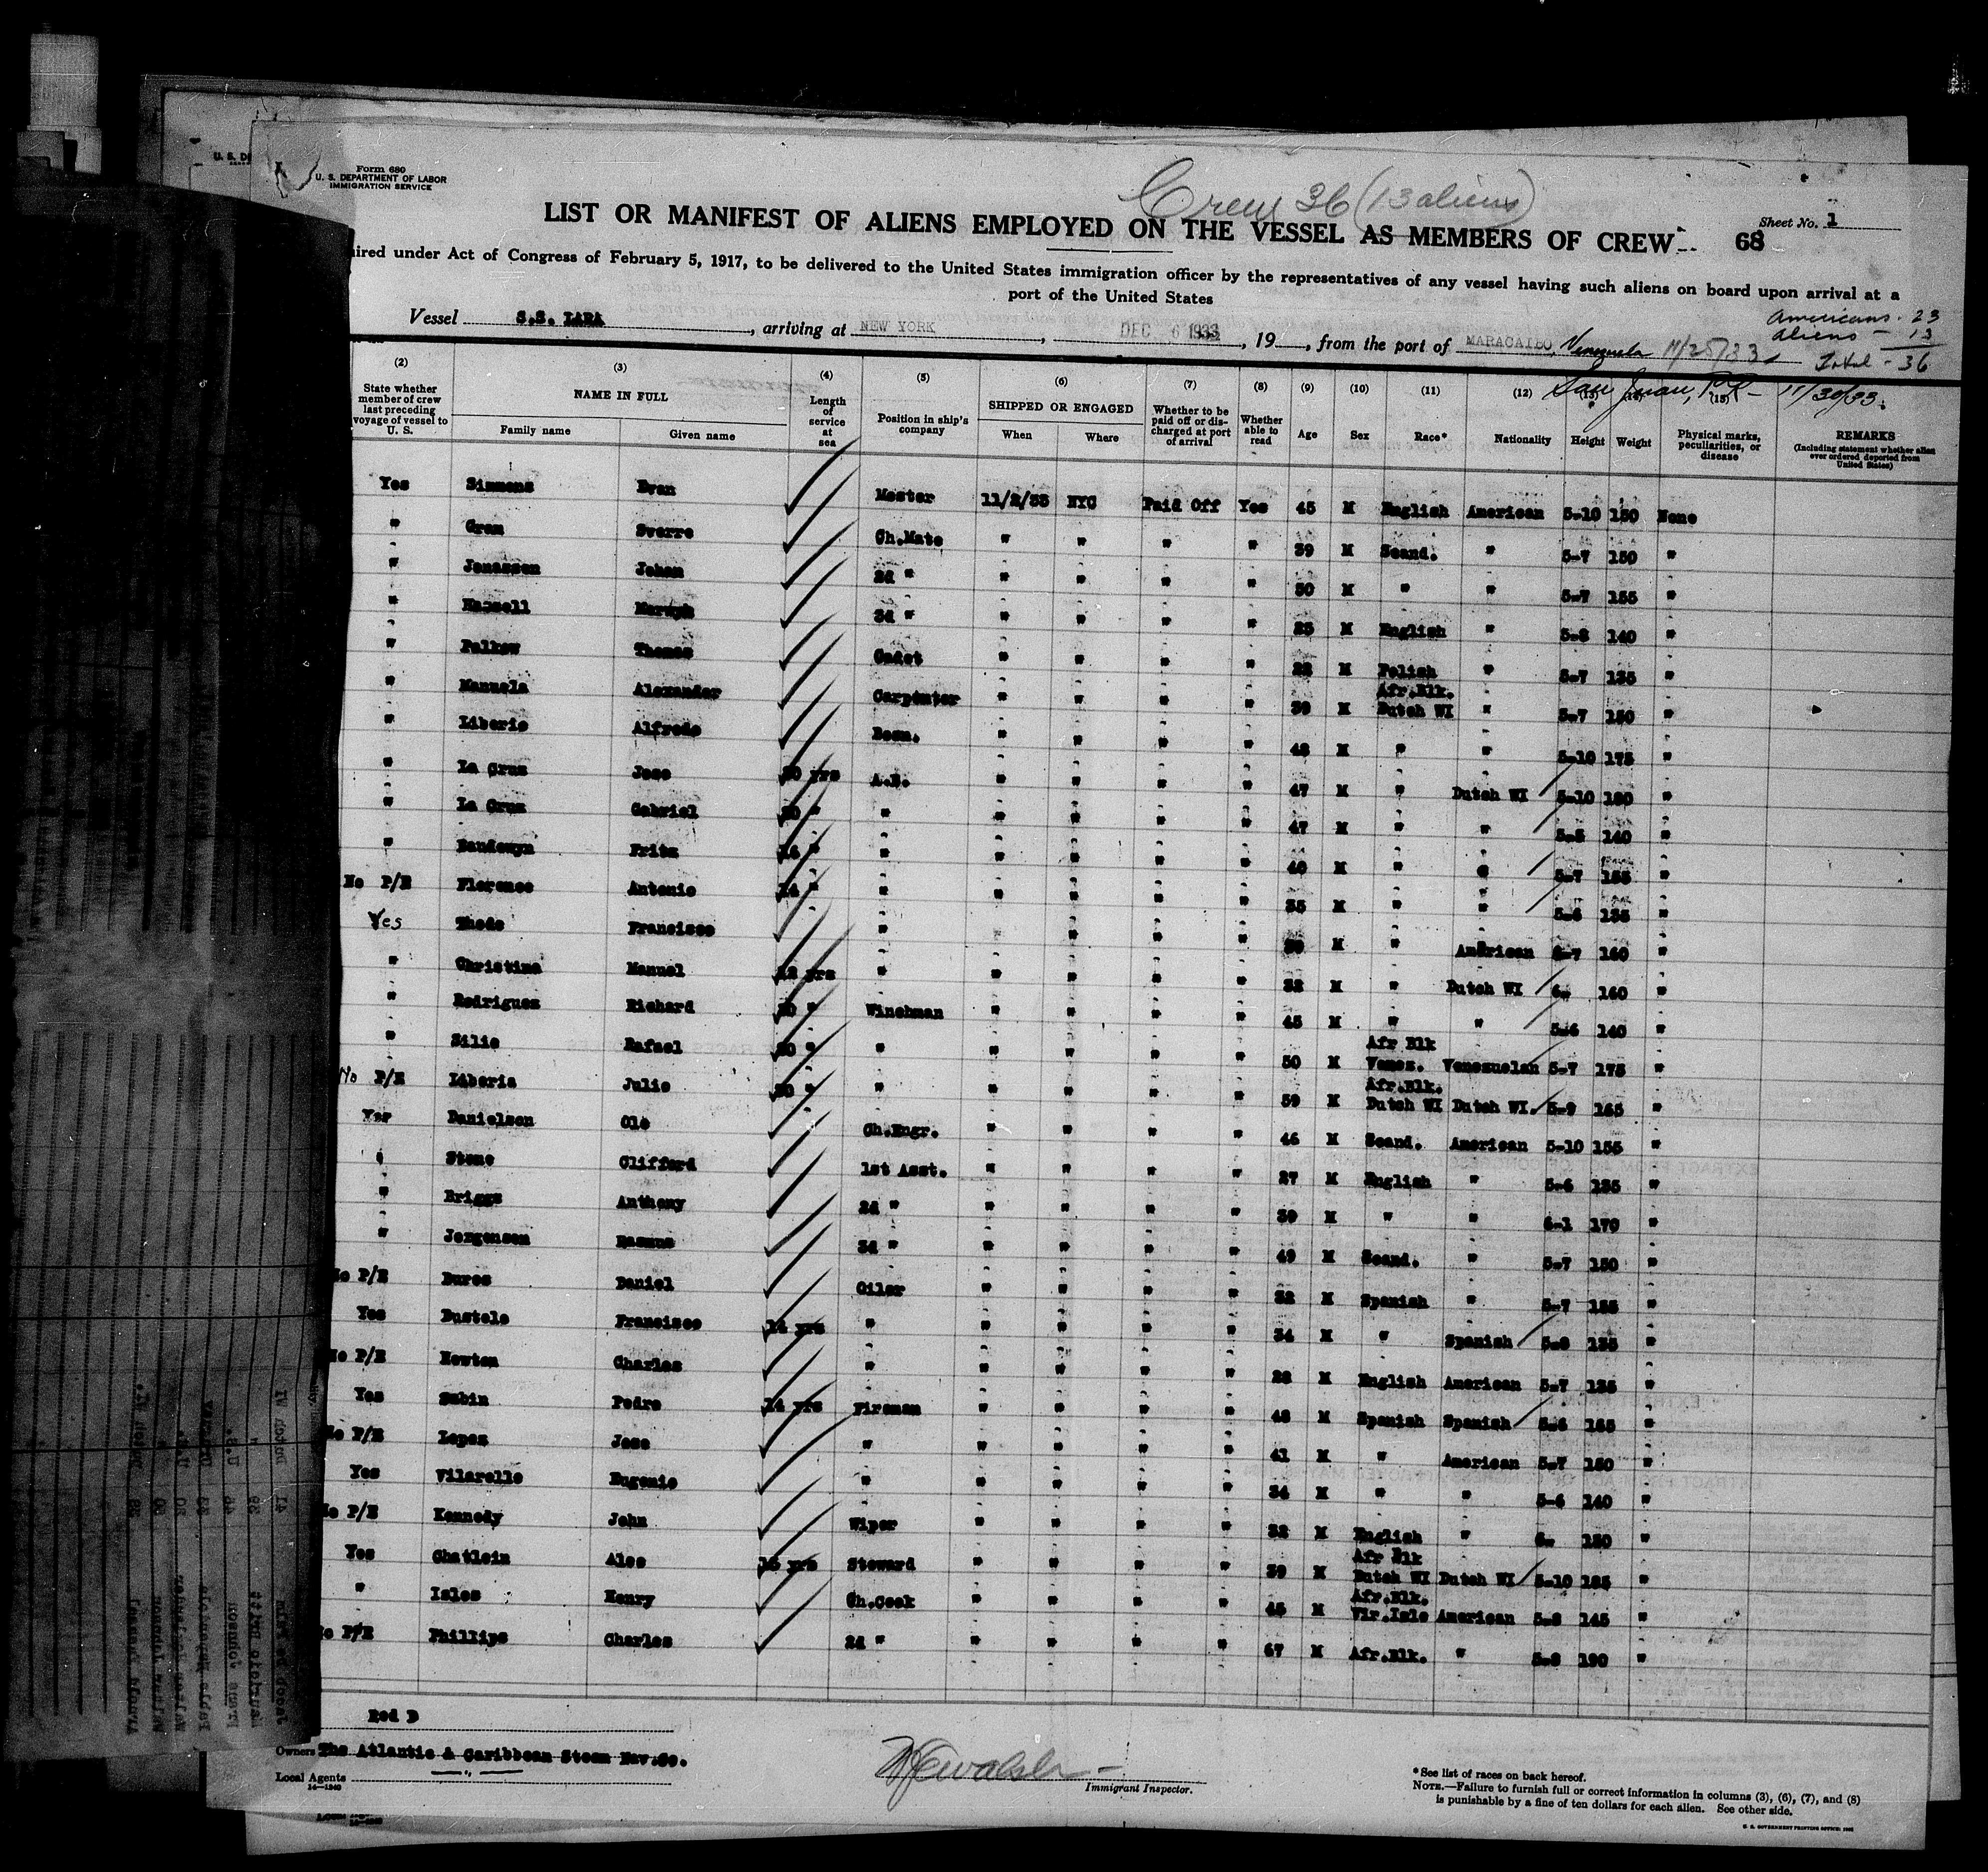 Form 680
U. S. DEPARTMENT OF LABOR
IMMIGRATION SERVICE
Crew 36 (13 aliens)
Sheet No. 1
LIST OR MANIFEST OF ALIENS EMPLOYED ON THE VESSEL AS MEMBERS OF CREW 68
ired under Act of Congress of February 5, 1917, to be delivered to the United States immigration officer by the representatives of any vessel having such aliens on board upon arrival at a
port of the United States
Americans - 23
Aliens - 13
Total - 36
Vessel S.S. LARA, arriving at NEW YORK, DEC 6 1933, 19, from the port of MARACAIBO, Venezuela 11/25/33
San Juan, P.R. - 11/30/33.
(2) (3) (4) (5) (6) (7) (8) (9) (10) (11) (12) (13) (14) (15)
State whether member of crew last preceding voyage of vessel to U. S.
NAME IN FULL
Family name Given name
Length of service at sea
Position in ship's company
SHIPPED OR ENGAGED
When Where
Whether to be paid off or discharged at port of arrival
Whether able to read
Age Sex Race* Nationality Height Weight
Physical marks, peculiarities, or disease
REMARKS
(Including statement whether alien ever ordered deported from United States)
Yes Simmons Evan Master 11/2/33 NYC Paid Off Yes 45 M English American 5-10 150 None
" Gram Sverre Ch.Mate " " " " 39 M Scand. " 5-7 150 "
" Jonassen Johan 2d " " " " " 30 M " " 5-7 155 "
" 3d " " " " " 25 M English " 5-8 140 "
" Thomas Cadet " " " " 22 M Polish " 5-7 135 "
" Manuela Alexander Carpenter " " " " 39 M Afr.Blk. Dutch WI " 5-7 150 "
" Liberio Alfredo Bosn. " " " " 48 M " " 5-10 175 "
" La Cruz Jose 20 yrs A.B. " " " " 47 M " Dutch WI 5-10 180 "
" La Cruz Gabriel 20 " " " " " " 47 M " " 5-5 140 "
" Baudouyn Fritz 14 " " " " " " 40 M " " 5-7 155 "
No P/E Florence Antonio 14 " " " " " " 35 M " " 5-6 135 "
Yes Thode Francisco " " " " M " American 5-7 160 "
" Christina Manuel 12 yrs " " " " " 32 M " Dutch WI 6- 160 "
" Rodriguez Richard 20 " Winchman " " " " 45 M " " 5-6 140 "
" Silie Rafael 20 " " " " " " 50 M Afr Blk Venez. Venezuelan 5-7 175 "
No P/E Liberia Julio 20 " " " " " " 39 M Afr.Blk. Dutch WI Dutch WI. 5-9 165 "
Yes Danielsen Ole Ch.Engr. " " " " 46 M Scand. American 5-10 155 "
" Stone Clifford 1st Asst. " " " " 27 M English " 5-6 135 "
" Briggs Anthony 2d " " " " " 39 M " " 6-1 170 "
" Jorgensen Rasmus 3d " " " " " 49 M Scand. " 5-7 150 "
No P/E Bures Daniel Oiler " " " " 32 M Spanish " 5-7 155 "
Yes Bustelo Francisco 14 yrs " " " " " 34 M " Spanish 5-8 135 "
No P/E Newton Charles " " " " " 28 M English American 5-7 135 "
Yes Subin Pedro 14 yrs Fireman " " " " 48 M Spanish Spanish 5-6 165 "
No P/E Lopez Jose " " " " " 41 M " American 5-7 150 "
Yes Vilarelle Eugenio " " " " " 34 M " " 5-6 140 "
No P/E Kennedy John Wiper " " " " 32 M English " 6- 150 "
Yes Chatlein Alec 16 yrs Steward " " " " 39 M Afr Blk Dutch WI Dutch WI 5-10 185 "
" Isles Henry Ch.Cook " " " " 45 M Afr.Blk. Vir.Isle American 5-8 145 "
No P/E Phillips Charles 2d " " " " " 67 M Afr.Blk. " 5-8 190 "
Red D
Owners The Atlantic & Caribbean Steam Nav.Co.
Local Agents
14-1240
Immigrant Inspector.
*See list of races on back hereof.
NOTE.—Failure to furnish full or correct information in columns (3), (6), (7), and (8)
is punishable by a fine of ten dollars for each alien. See other side.
U. S. GOVERNMENT PRINTING OFFICE